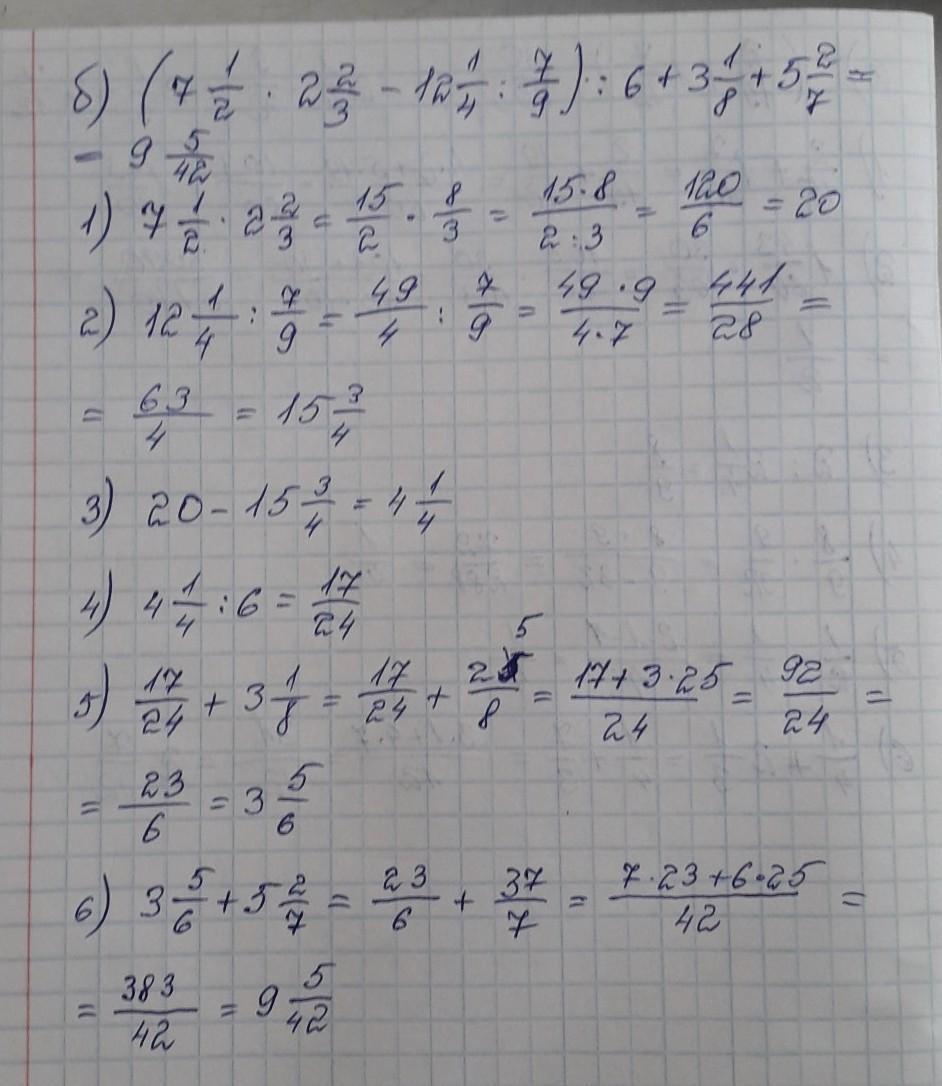 б) (7 1/2 · 2 2/3 - 12 1/4 : 7/9) : 6 + 3 1/8 + 5 2/7 =
- 9 5/42
1) 7 1/2 · 2 2/3 = 15/2 · 8/3 = 15·8/2:3 = 120/6 = 20
2) 12 1/4 : 7/9 = 49/4 : 7/9 = 49·9/4·7 = 441/28 =
= 63/4 = 15 3/4
3) 20 - 15 3/4 = 4 1/4
4) 4 1/4 : 6 = 17/24
5) 17/24 + 3 1/8 = 17/24 + 25/8 = 17+3·25/24 = 92/24 =
= 23/6 = 3 5/6
6) 3 5/6 + 5 2/7 = 23/6 + 37/7 = 7·23+6·25/42 =
= 383/42 = 9 5/42